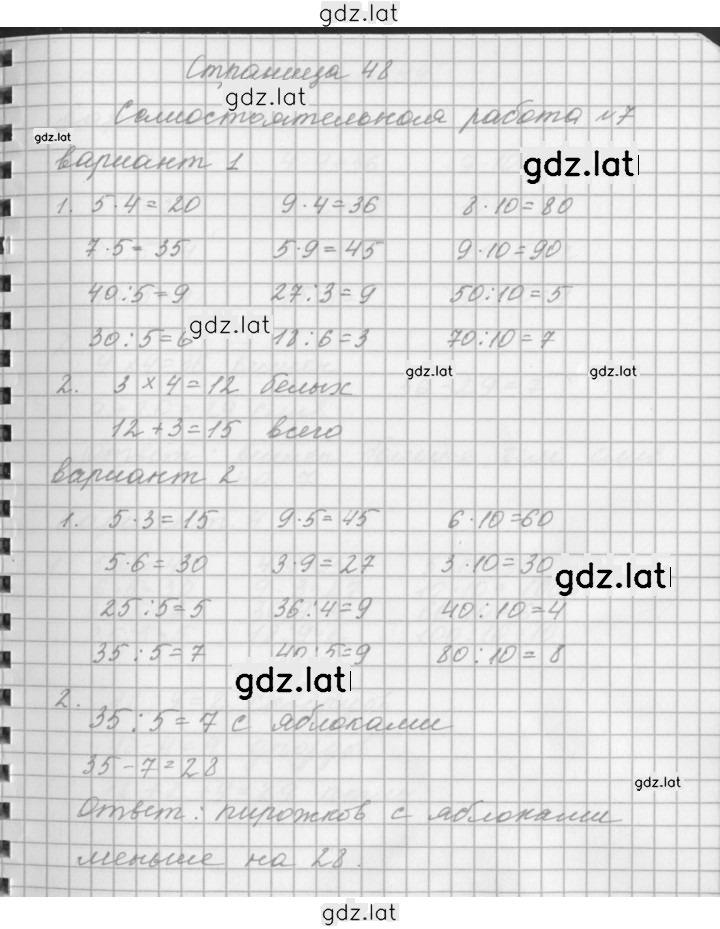 gdz.lat
Страница 48
gdz.lat
Самостоятельная работа №7
gdz.lat
вариант 1
gdz.lat
1. 5·4=20 9·4=36 8·10=80
7·5=35 5·9=45 9·10=90
40:5=9 27:3=9 50:10=5
gdz.lat
30:5=6 18:6=3 70:10=7
gdz.lat gdz.lat
2. 3×4=12 белых
12+3=15 всего
вариант 2
1. 5·3=15 9·5=45 6·10=60
5·6=30 3·9=27 3·10=30
gdz.lat
25:5=5 36:4=9 40:10=4
35:5=7 40:5=9 80:10=8
gdz.lat
2. 35:5=7 с яблоками
35-7=28
gdz.lat
Ответ: пирожков с яблоками
меньше на 28.
gdz.lat